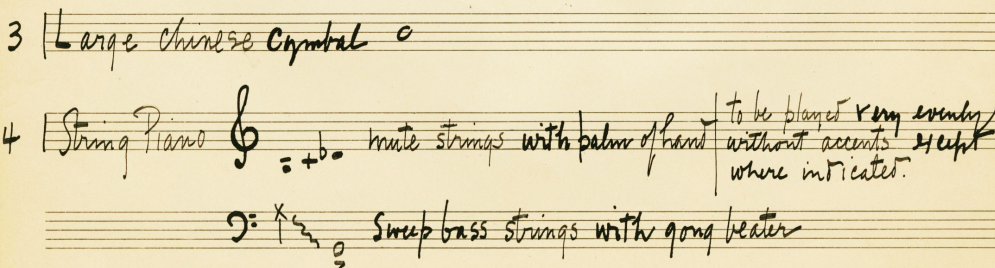 3 Large Chinese Cymbal
4 String Piano mute strings with palm of hand
to be played very evenly
without accents except
where indicated.
Sweep bass strings with gong beater